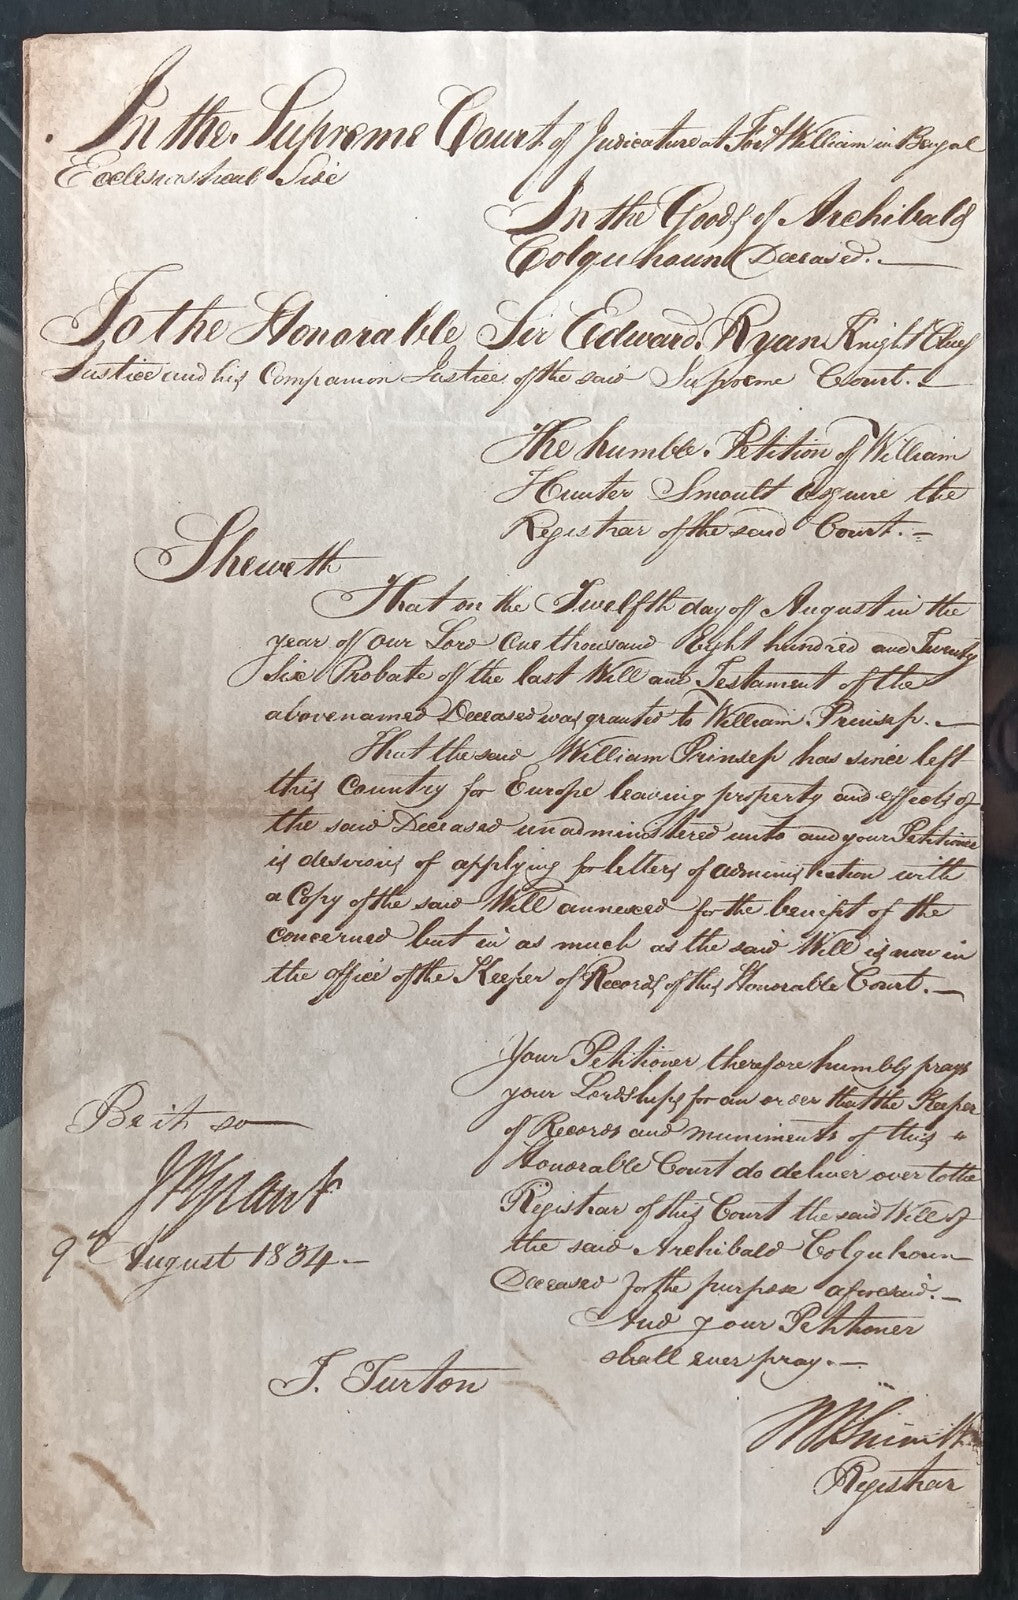 In the Supreme Court of Judicature at Fort William in Bengal
Ecclesiastical Side
In the Goods of Archibald
Colquhoun Deceased.
To the Honorable Sir Edward Ryan Knight Chief
Justice and his Companion Justice of the said Supreme Court.
The humble Petition of William
Hunter Smoult Esquire the
Registrar of the said Court.
Sheweth
That on the Twelfth day of August in the
year of our Lord One thousand Eight hundred and Twenty
Six Probate of the last Will and Testament of the
abovenamed Deceased was granted to William Prinsep.
That the said William Prinsep has since left
this Country for Europe leaving property and effects of
the said Deceased unadministered unto and your Petitioner
is desirous of applying for letters of administration with
a Copy of the said Will annexed for the benefit of the
concerned but in as much as the said Will is now in
the office of the Keeper of Records of this Honorable Court.
Your Petitioner therefore humbly prays
your Lordships for an order that the Keeper
of Records and muniments of this
Honorable Court do deliver over to the
Registrar of this Court the said Will of
the said Archibald Colquhoun
Deceased for the purpose aforesaid.
And your Petitioner
shall ever pray.
Be it so
J P Grant
9th August 1834
T. Turton
W H Smoult
Registrar